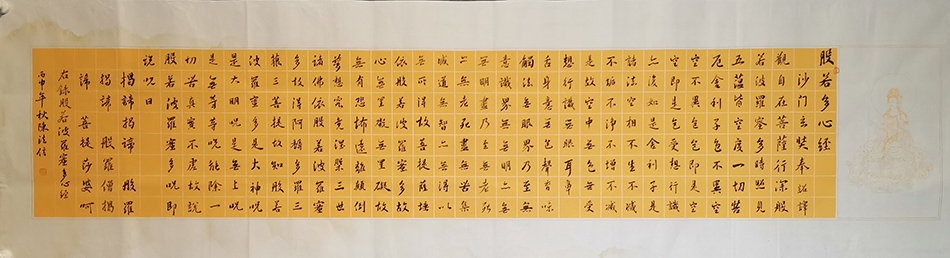 般若多心経
沙門玄奘奉詔譯
觀自在菩薩行深般
若波羅蜜多時照見
五蘊皆空度一切苦
厄舍利子色不異空
空不異色色即是空
空即是色受想行識
亦復如是舍利子是
諸法空相不生不滅
不垢不淨不增不減
是故空中無色無受
想行識無眼耳鼻
舌身意無色聲香味
觸法無眼界乃至無
意識界無無明亦無
無明盡乃至無老死
亦無老死盡無苦集
滅道無智亦無得以
無所得故菩提薩埵
依般若波羅蜜多故
心無罣礙無罣礙故
無有恐怖遠離顛倒
夢想究竟涅槃三世
諸佛依般若波羅蜜
多故得阿耨多羅三
藐三菩提故知般若
波羅蜜多是大神呪
是大明呪是無上呪
是無等等呪能除一
切苦真實不虛故說
般若波羅蜜多呪即
說呪曰
揭諦揭諦 般羅
揭諦 般羅僧揭
諦 菩提莎婆呵
右錄般若波羅蜜多心經
丙申年秋陳法信